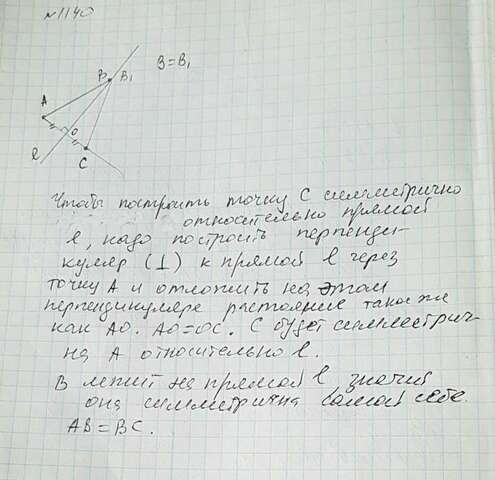 N1140
B B₁
B=B₁
A
O
l
C
Чтобы построить точку C симметрично
относительно прямой
l, надо построить перпенди-
куляр (⊥) к прямой l через
точку A и отложить на этом
перпендикуляре растояние такое же
как AO. AO=OC. C будет симметрич-
на A относительно l.
B лежит на прямой l значит
она симметрична самой себе.
AB=BC.